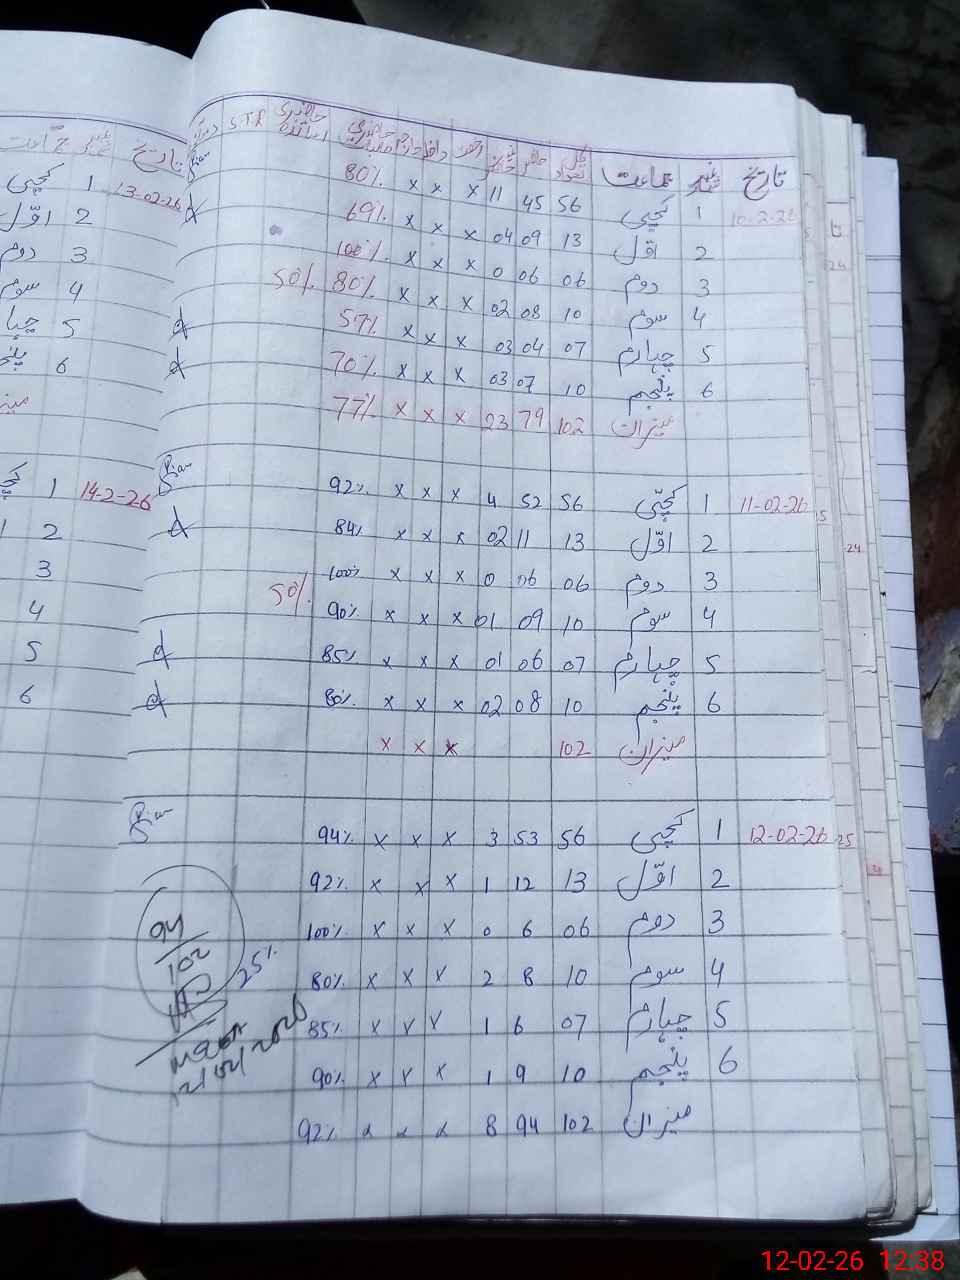 تاریخ نمبر شمار جماعت کل تعداد حاضر غیر حاضر رخصت داخلہ خارجہ حاضری طلبہ حاضری اساتذہ S.T.R دستخط
10-2-26 1 کچی 56 45 11 x x x 80%
2 اوّل 13 09 04 x x x 69%
3 دوم 06 06 0 x x x 100%
4 سوم 10 08 02 x x x 80% 50%
5 چہارم 07 04 03 x x x 57%
6 پنجم 10 07 03 x x x 70%
میزان 102 79 23 x x x 77%
11-02-26 1 کچّی 56 52 4 x x x 92%
2 اوّل 13 11 02 x x x 84%
3 دوم 06 06 0 x x x 100%
4 سوم 10 09 01 x x x 90% 50%
5 چہارم 07 06 01 x x x 85%
6 پنجم 10 08 02 x x x 80%
میزان 102 x x x
12-02-26 1 کچی 56 53 3 x x x 94%
2 اوّل 13 12 1 x x x 92%
3 دوم 06 6 0 x x x 100%
4 سوم 10 8 2 x x x 80%
5 چہارم 07 6 1 x x x 85%
6 پنجم 10 9 1 x x x 90%
میزان 102 94 8 x x x 92%
94
102
25%
تاریخ نمبر شمار جماعت
13-02-26 1 کچی
2 اوّل
3 دوم
4 سوم
5 چہا
6 پنج
14-2-26 1
2
3
4
5
6
24
24
25
12-02-26 12:38